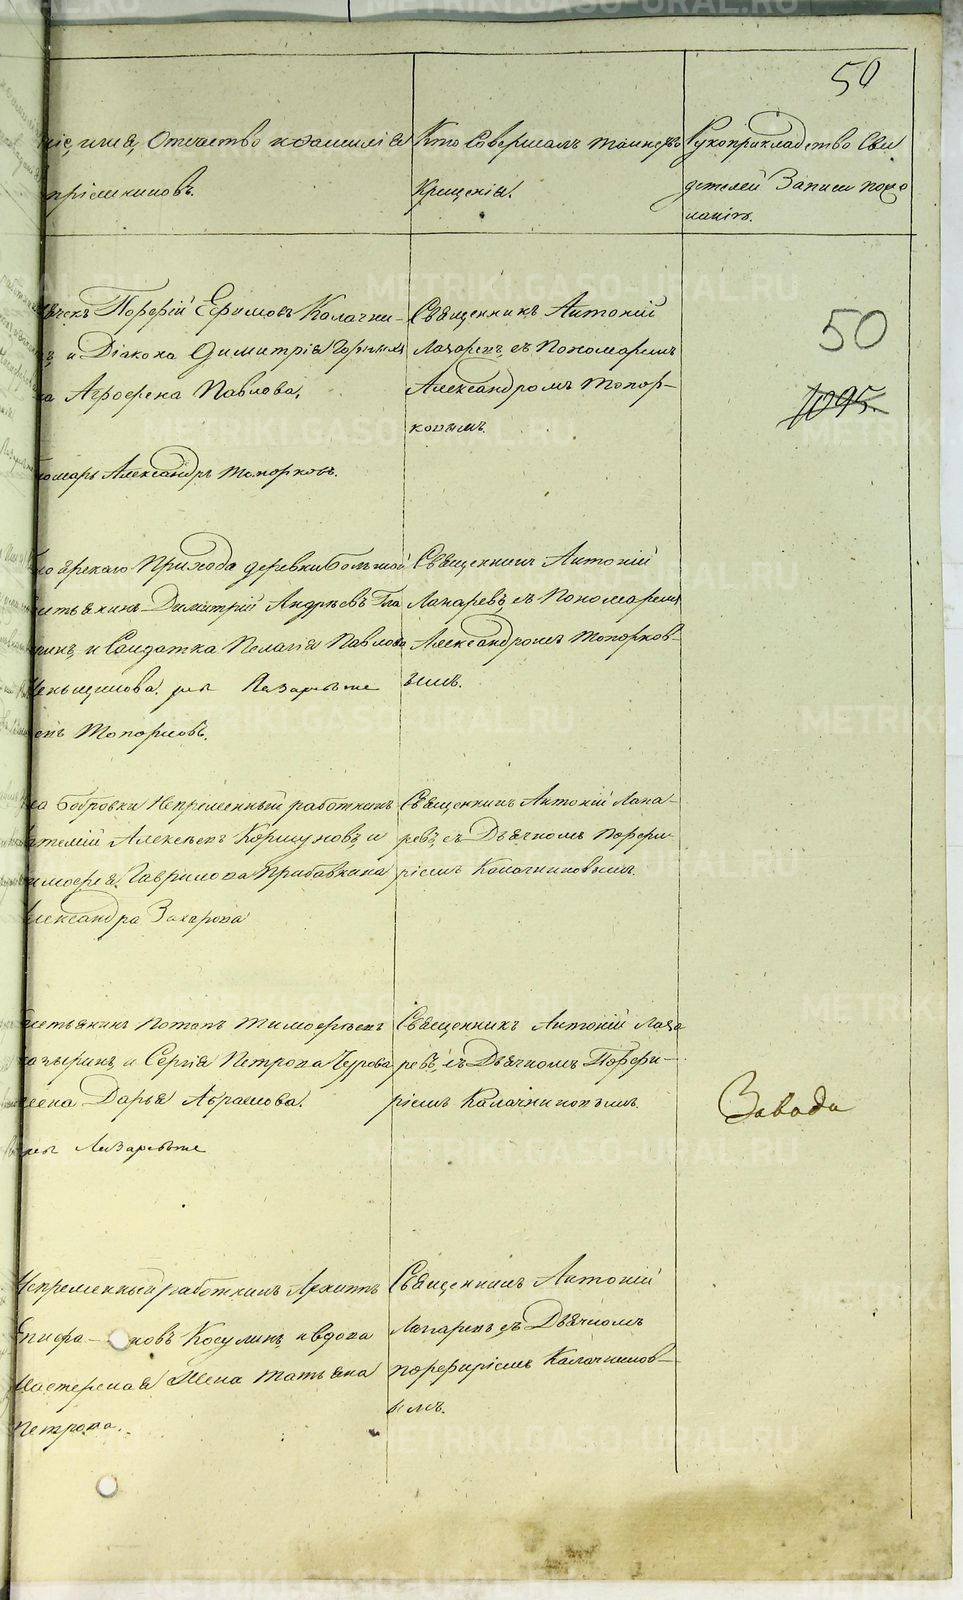 50
ніе, имя, Отчество и фамилія
пріемниковъ.
Кто Совершалъ таинство
Крещенія.
Рукоприкладство Сви
детелей Записи по
50
1095.
Порфирій Ефимовъ Колачни-
и Діакона Димитрія Горных
Агрофена Павлова,
Александръ Топорковъ.
Священникъ Антоній
Лазаревъ, съ Пономаремъ
Александромъ Топор-
ковымъ.
Прихода деревни Большой
Димитрій Андреевъ Гла
и Солдатка Пелагія Павлова
Меньщикова.
Топорковъ.
Священникъ Антоній
Лазаревъ, съ Пономаремъ
Александромъ Топорков-
ымъ.
Бобровки Непременный работникъ
Алексеевъ Коршуновъ, и
Гаврилова Прибавкина
Александра Захарова
Священникъ Антоній Лаза-
ревъ, съ Дьячкомъ Порфи-
ріемъ Колачниковымъ.
Потапъ Тимофеевъ
и Сергія Петрова Чурова
жена Дарья Абрамова.
Священникъ Антоній Лаза
ревъ, съ Дьячкомъ Порфи-
ріемъ Колачниковымъ.
Завода
Непременный работникъ Архипъ
Епифа-новъ Косулинъ, и вдова
Мастерская Жена Татьяна
Петрова.
Священникъ Антоній
Лазаревъ съ Дьячкомъ
Порфиріемъ Колачников-
ымъ.
METRIKI.GASO-URAL.RU